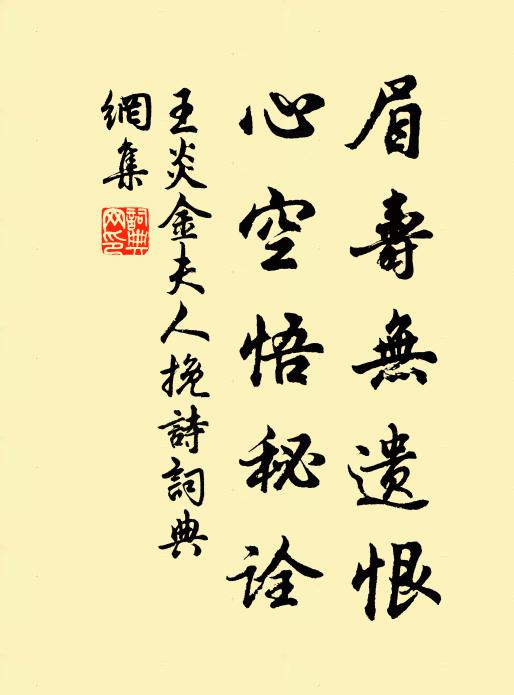 眉壽無遗恨
心空悟秘诠
王炎金夫人挽詩詞典
網集
詞典
网印